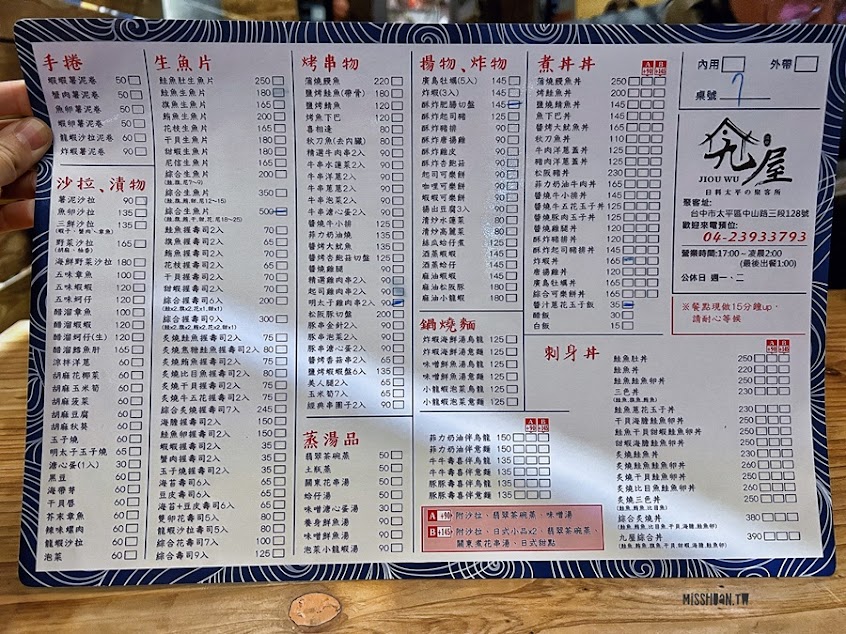 手捲
蝦蝦薯泥卷 50
蟹肉薯泥卷 50
魚卵薯泥卷 50
蝦卵薯泥卷 50
龍蝦沙拉泥卷 60
炸蝦薯泥卷 90
沙拉、漬物
薯泥沙拉 90
魚卵沙拉 135
三鮮沙拉 135
野菜沙拉 165
海鮮野菜沙拉 180
五味章魚 100
五味蝦蝦 120
五味蚵仔 120
醋溜章魚 100
醋溜蝦蝦 120
醋溜蚵仔(生) 120
醋溜鱈魚肝 165
涼拌洋蔥 60
胡麻花椰菜 60
胡麻玉米筍 60
胡麻菠菜 60
胡麻豆腐 60
胡麻秋葵 60
玉子燒 60
明太子玉子燒 65
溏心蛋(1入) 30
黑豆 60
海帶芽 60
干貝唇 60
芥末章魚 60
辣味螺肉 60
龍蝦沙拉 60
泡菜 60
生魚片
鮭魚肚生魚片 250
鮭魚生魚片 180
旗魚生魚片 165
鮪魚生魚片 200
花枝生魚片 165
干貝生魚片 180
甜蝦生魚片 180
尼信生魚片 165
綜合生魚片 200
綜合生魚片 350
綜合生魚片 500
鮭魚握壽司2入 70
旗魚握壽司2入
鮪魚握壽司2入
花枝握壽司2入
干貝握壽司2入
甜蝦握壽司2入
綜合握壽司6入
綜合握壽司9入 300
炙燒鮭魚握壽司2入 75
炙燒焦糖鮭魚握壽司2入 80
炙燒鮪魚握壽司2入 80
炙燒干貝握壽司2入 75
綜合炙燒握壽司7入 245
海膽握壽司2入 80
鮭魚卵握壽司2入 90
蝦蝦握壽司2入 35
蟹肉握壽司2入 35
玉子燒握壽司2入 35
海苔壽司6入 65
豆皮壽司6入 65
海苔+豆皮壽司6入 65
雙卵花壽司5入 80
龍蝦沙拉壽司5入 80
綜合花壽司7入 100
綜合壽司9入 125
烤串物
蒲燒鰻魚 220
鹽烤鮭魚(帶骨) 180
鹽烤鯖魚 120
烤魚下巴 120
喜相逢 90
秋刀魚(去內臟) 80
精選牛肉串2入 90
牛串水蓮菜2入 90
牛串洋蔥2入 90
牛串蔥蔥2入 90
牛串泡菜2入 90
牛串溏心蛋2入 90
醬燒牛小排 125
菲力奶油燒 135
醬烤大魷魚 165
醬烤杏鮑菇切盤 125
醬燒雞腿 120
精選雞肉串2入 90
起司雞肉串2入 90
明太子雞肉串2入 90
松阪豬切盤 200
豚串金針2入 90
豚串泡菜2入 90
豚串溏心蛋2入 90
醬烤香菇串2入 65
鹽烤蝦蝦盤6入 135
美人腿2入 65
玉米筍7入 65
經典串團子2入 90
蒸湯品
翡翠茶碗蒸 50
土瓶蒸 50
關東花串湯 50
蛤仔湯 50
味噌溏心蛋湯 30
養身鮮魚湯 50
味噌鮮魚湯 50
泡菜小龍蝦湯 50
揚物、炸物
廣島牡蠣(5入) 145
炸蝦(3入) 145
酥炸肥腸切盤 145
酥炸起司豬 125
酥炸豬排 90
酥炸唐揚雞 90
酥炸雞皮 90
酥炸杏鮑菇 90
起司可樂餅 90
咖哩可樂餅 90
蝦蝦可樂餅 90
揚出豆腐3入 90
清炒水蓮菜 80
清炒高麗菜 80
絲瓜蛤仔煮 90
酒蒸蝦蝦 90
酒蒸蛤仔 90
麻油蝦蝦 90
麻油松阪豚 180
麻油小龍蝦 180
鍋燒麵
炸蝦海鮮湯烏龍 125
炸蝦海鮮湯意麵 125
味噌鮮魚湯烏龍 125
味噌鮮魚湯意麵 125
小龍蝦泡菜烏龍 125
小龍蝦泡菜意麵 125
A +90 B +145
菲力奶油伴烏龍 150
菲力奶油伴意麵 150
牛牛壽喜伴烏龍 135
牛牛壽喜伴意麵 135
豚豚壽喜伴烏龍 135
豚豚壽喜伴意麵 135
A +90 附沙拉、翡翠茶碗蒸、味噌湯
B +145 附沙拉、日式小品x2、翡翠茶碗蒸、
關東煮花串湯、日式甜點
煮丼丼 A +90 B +145
蒲燒鰻魚丼 250
鹽烤鮭魚丼 200
鹽燒鯖魚丼 145
魚下巴丼 145
醬烤大魷魚丼 190
秋刀魚丼 110
牛肉洋蔥蓋丼 125
豬肉洋蔥蓋丼 115
松阪豬丼 230
菲力奶油牛肉丼 165
醬燒牛小排丼 155
牛五花丼 120
醬燒豚肉玉子丼 115
醬燒雞腿丼 145
酥炸豬排丼 120
酥炸起司豬排丼 145
炸蝦丼 165
唐揚雞丼 120
廣島牡蠣丼 165
綜合可樂餅丼 145
醬汁蔥花玉子飯 30
醋飯 30
白飯 15
刺身丼 A +90 B +145
鮭魚肚丼 250
鮭魚丼 220
鮭魚鮭魚卵丼 250
三色丼 230
鮭魚蔥花玉子丼 230
干貝海膽鮭魚卵丼 240
鮭魚干貝甜蝦鮭魚卵丼 250
甜蝦海膽鮭魚卵丼 250
炙燒鮭魚丼 230
炙燒鮭魚鮭魚卵丼 260
炙燒比目魚鮭魚卵丼 260
炙燒三色丼 250
綜合炙燒丼 380
九屋綜合丼 390
內用 外帶
桌號 7
九屋
JIOU WU
日料太平の聚客所
聚客址:
台中市太平區中山路三段128號
歡迎來電預位:
04-23933793
營業時間:17:00~凌晨2:00
(最後出餐1:00)
公休日 週一、二
※餐點現做15分鐘up,
請耐心等候
MISSHUAN.TW